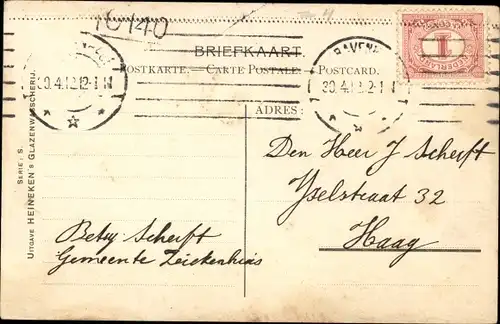 10140
BRIEFKAART.
POSTKARTE. — CARTE POSTALE. — POSTCARD.
ADRES:
30.4.12 12-1 N
NEDERLAND
1
Den Heer J Scherft
Yselstraat 32
Haag
Betsy Scherft
Gemeente Ziekenhuis
SERIE: S.
UITGAVE HEINEKEN'S GLAZENWASSCHERIJ.